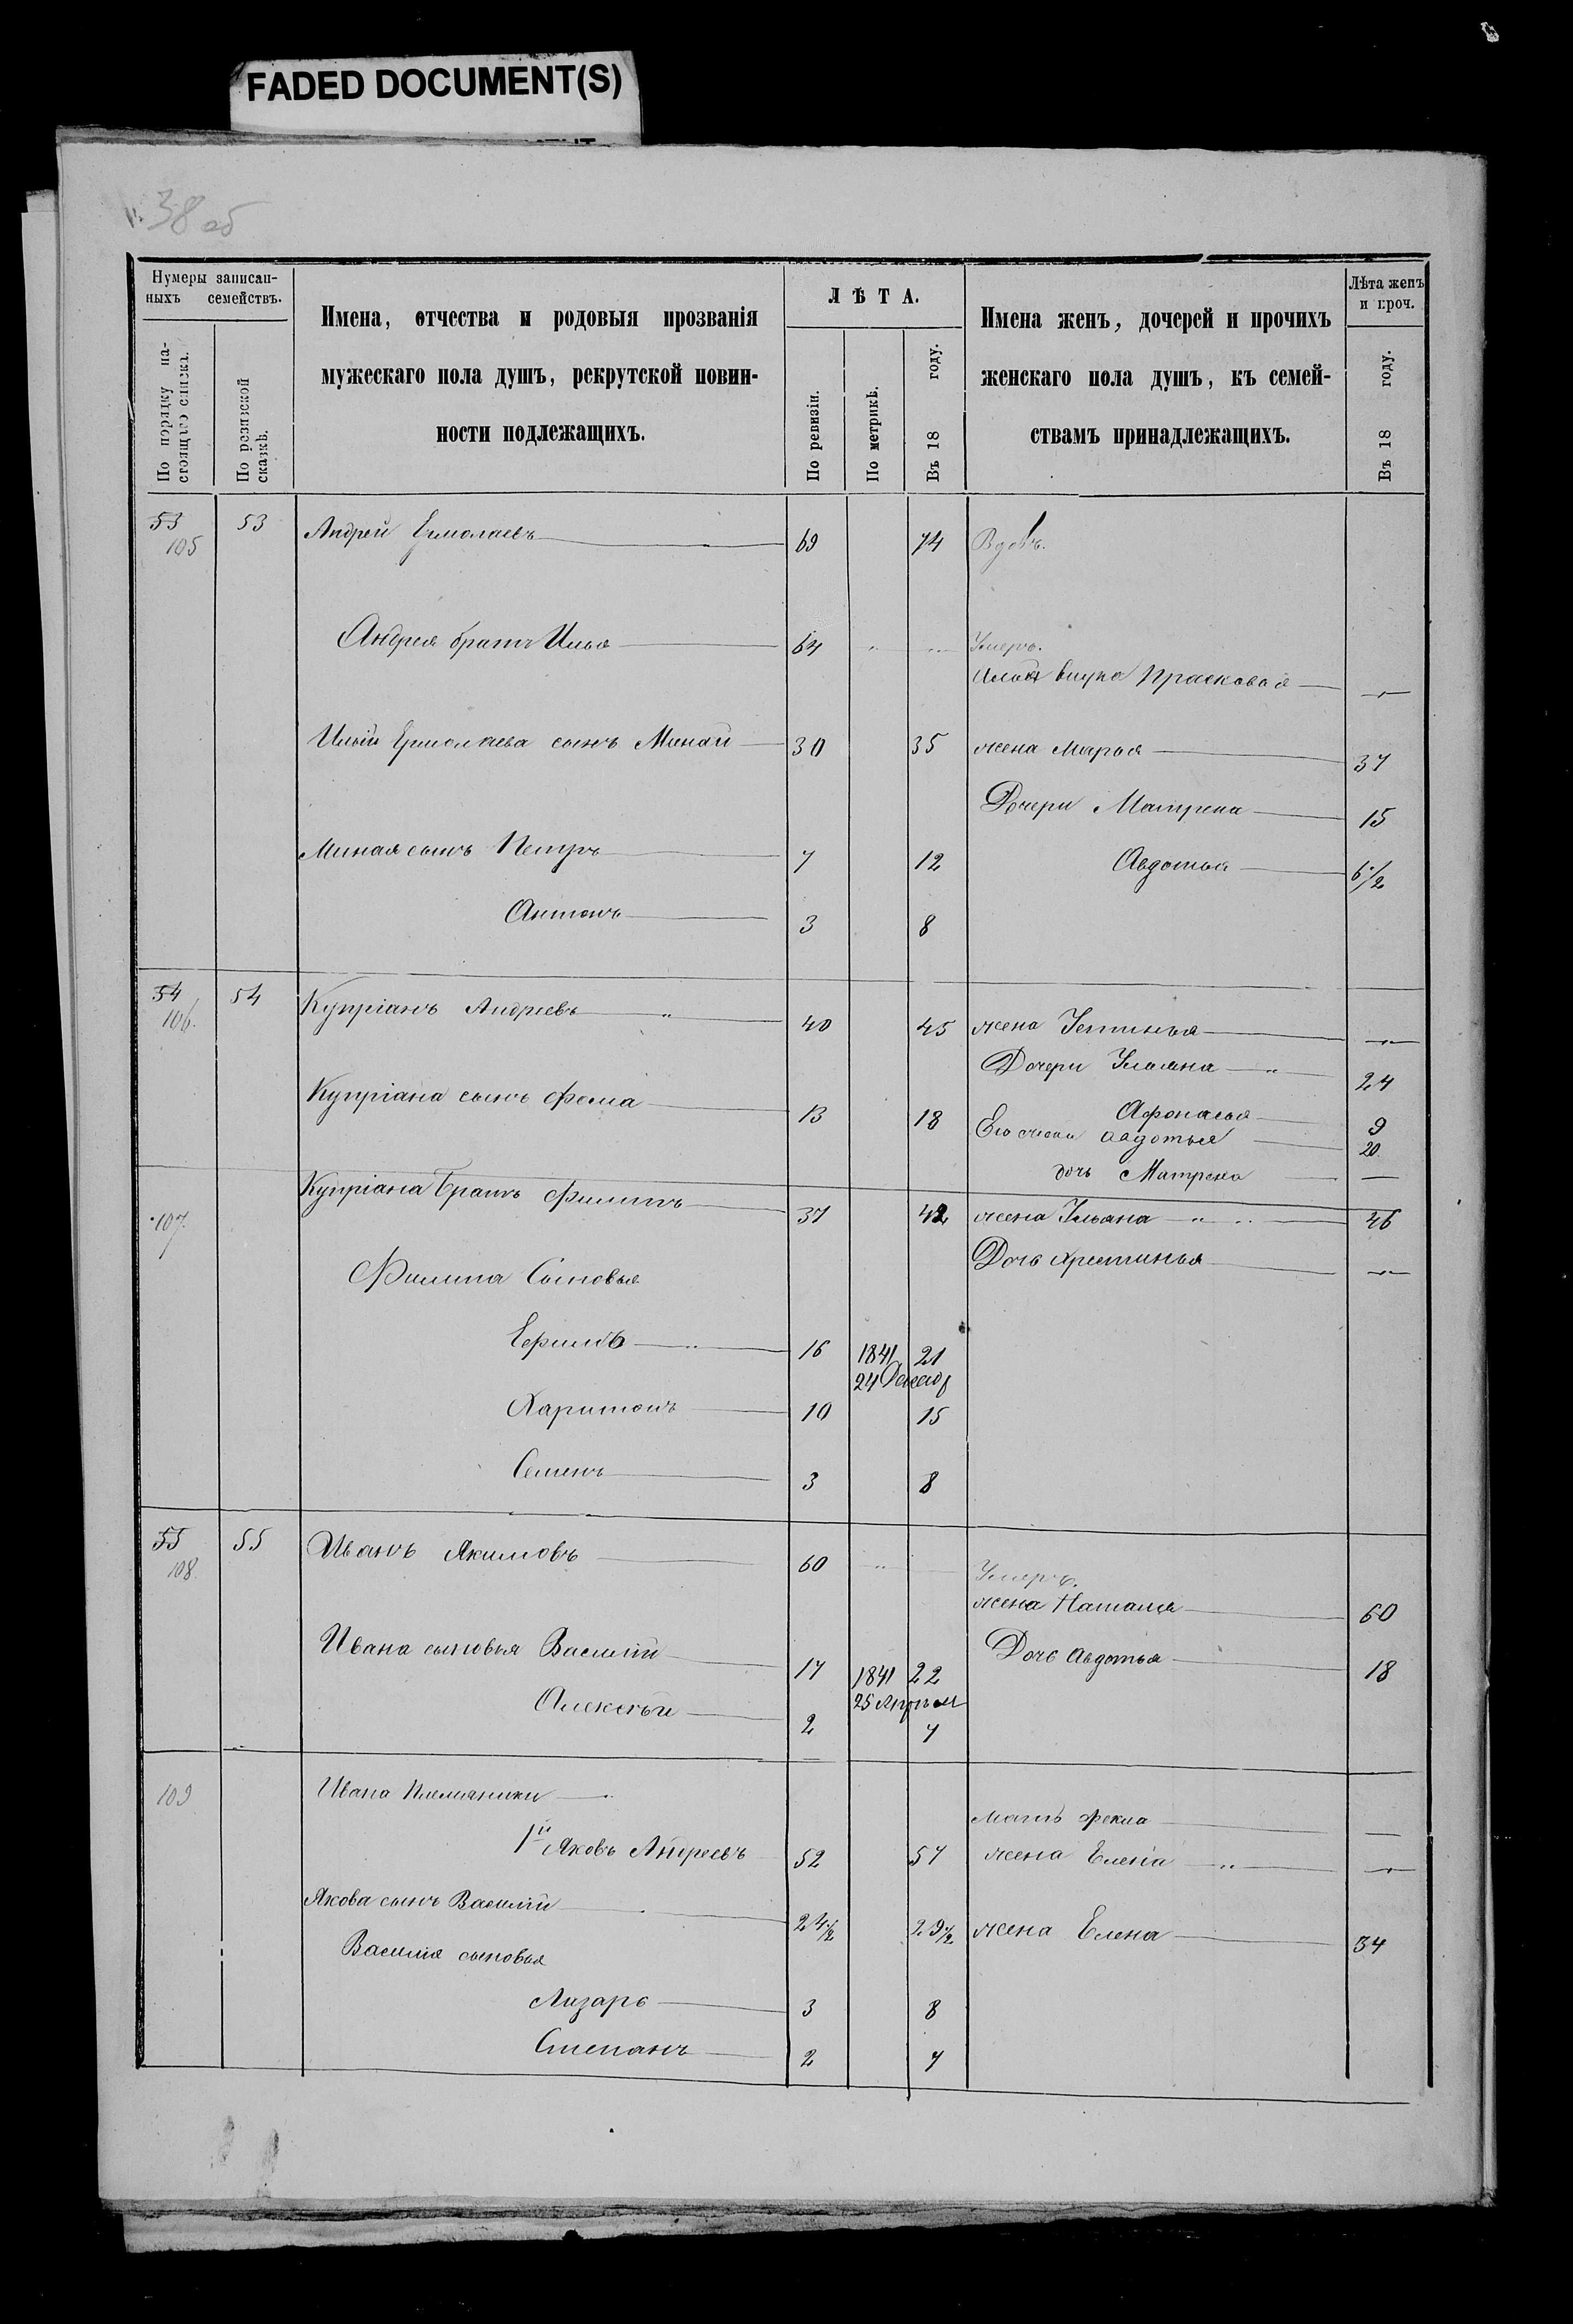 FADED DOCUMENT(S)
38 об
Нумеры записан-
ныхъ семействъ.
По порядку на-
стоящаго списка.
По ревизской
сказкѣ.
Имена, отчества и родовыя прозванія
мужескаго пола душъ, рекрутской повин-
ности подлежащихъ.
ЛѢТА.
По ревизіи.
По метрикѣ.
Въ 18 году.
Имена женъ, дочерей и прочихъ
женскаго пола душъ, къ семей-
ствамъ принадлежащихъ.
Лѣта женъ
и проч.
Въ 18 году.
53 53 Андрей Ермолаевъ 69 74 Вдовъ.
105
Андрея братъ Илья 64 Умеръ.
Ильи внука Прасковья
Ильи Ермолаева сынъ Минай 30 35 жена Марья 37
Дочери Матрена 15
Миная сынъ Петръ 7 12 Авдотья 6 1/2
Антонъ 3 8
54 54 Купріанъ Андреевъ 40 45 жена Устинья
106.
Дочери Ульяна 24
Купріана сынъ Фома 13 18 Афонасья 9
Его жена Авдотья 20
дочь Матрена
107. Купріана братъ Филипъ 37 42 жена Ульяна 46
Дочь Хрестинья
Филипа Сыновья
Ефимъ 16 1841 21
24 Декабр
Харитонъ 10 15
Семенъ 3 8
55 55 Иванъ Якимовъ 60 Умеръ.
108.
жена Наталья 60
Ивана сыновья Василій 17 1841 22 Дочь Авдотья 18
25 Апрѣля
Алексѣй 2 7
109 Ивана Племяники
мать Фекла
1й Яковъ Андреевъ 52 57 жена Елена
Якова сынъ Василій 24 1/2 29 1/2 жена Елена 34
Василія сыновья
Лазарь 3 8
Степанъ 2 7